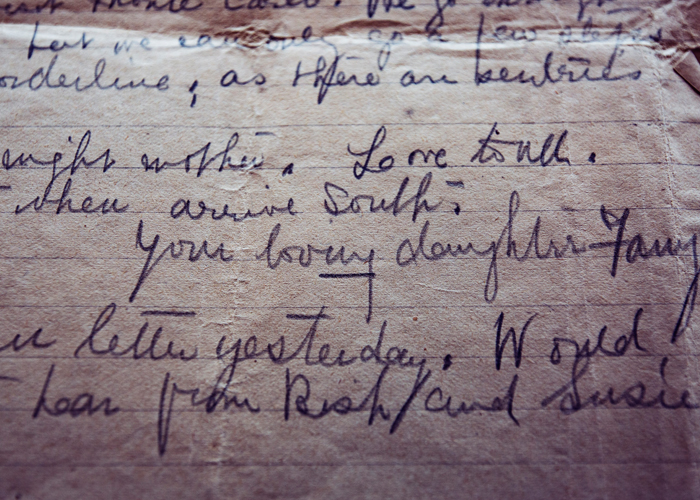 Monte Carlo. We go
but we can only go a few steps
orderline, as there are sentries
night mother. Love to all.
when arrive South.
Your loving daughter Fany
letter yesterday. Would
hear from Rish/and Susie